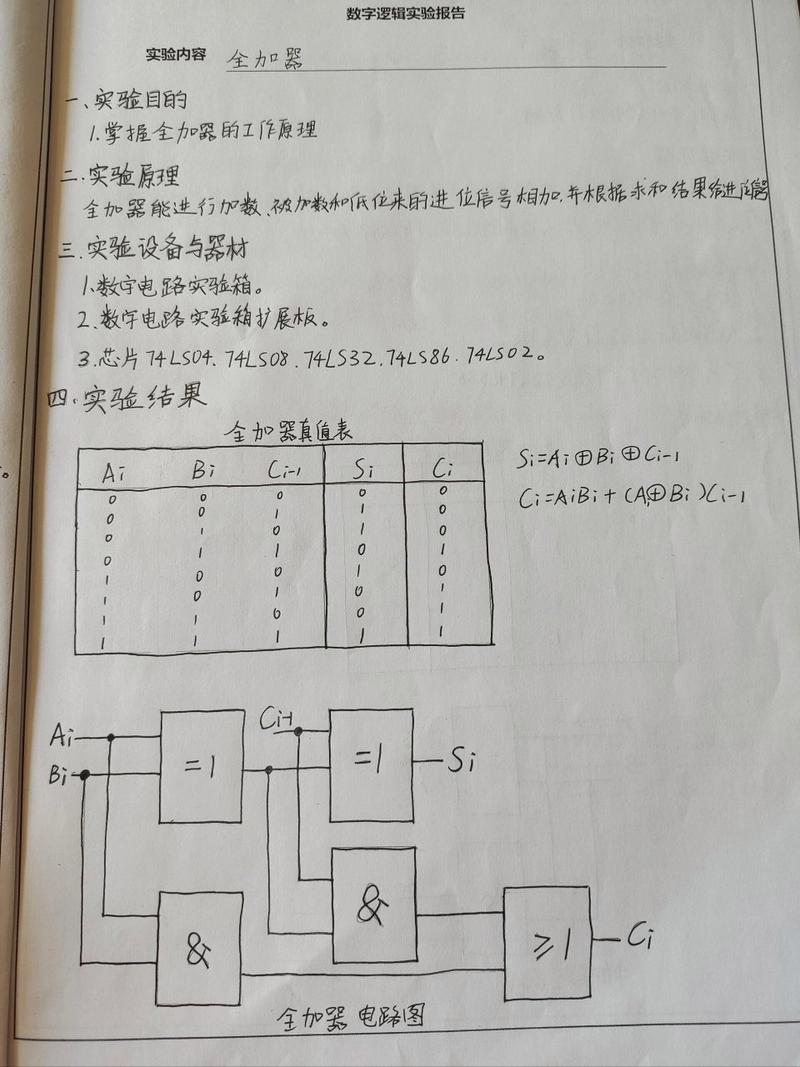 数字逻辑实验报告
实验内容 全加器
一、实验目的
1.掌握全加器的工作原理
二.实验原理
全加器能进行加数、被加数和低位来的进位信号相加,并根据求和结果给进位信号
三.实验设备与器材
1.数字电路实验箱。
2.数字电路实验箱扩展板。
3.芯片74LS04、74LS08、74LS32、74LS86、74LS02。
四、实验结果
全加器真值表
Ai Bi Ci-1 Si Ci
0 0 0 0 0
0 0 1 1 0
0 1 0 1 0
0 1 1 0 1
1 0 0 1 0
1 0 1 0 1
1 1 0 0 1
1 1 1 1 1
Si=Ai⊕Bi⊕Ci-1
Ci=AiBi+(Ai⊕Bi)Ci-1
Ai
Bi
=1
Ci-1
=1
Si
&
&
≥1
Ci
全加器 电路图